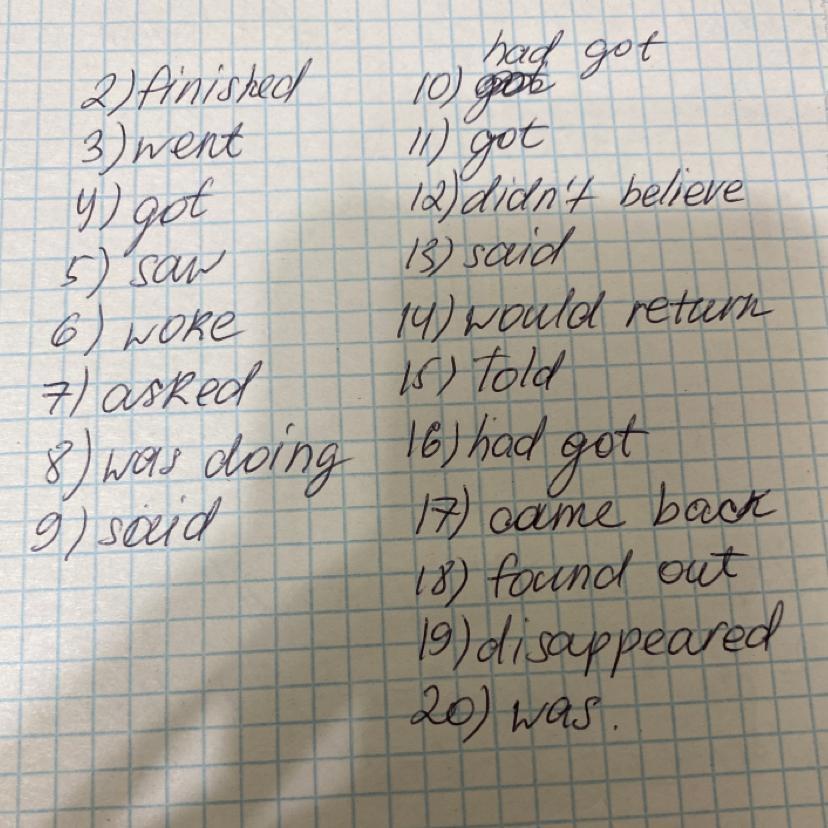 2) finished
3) went
4) got
5) saw
6) woke
7) asked
8) was doing
9) said
had got
10)
11) got
12) didn't believe
13) said
14) would return
15) told
16) had got
17) came back
18) found out
19) disappeared
20) was.